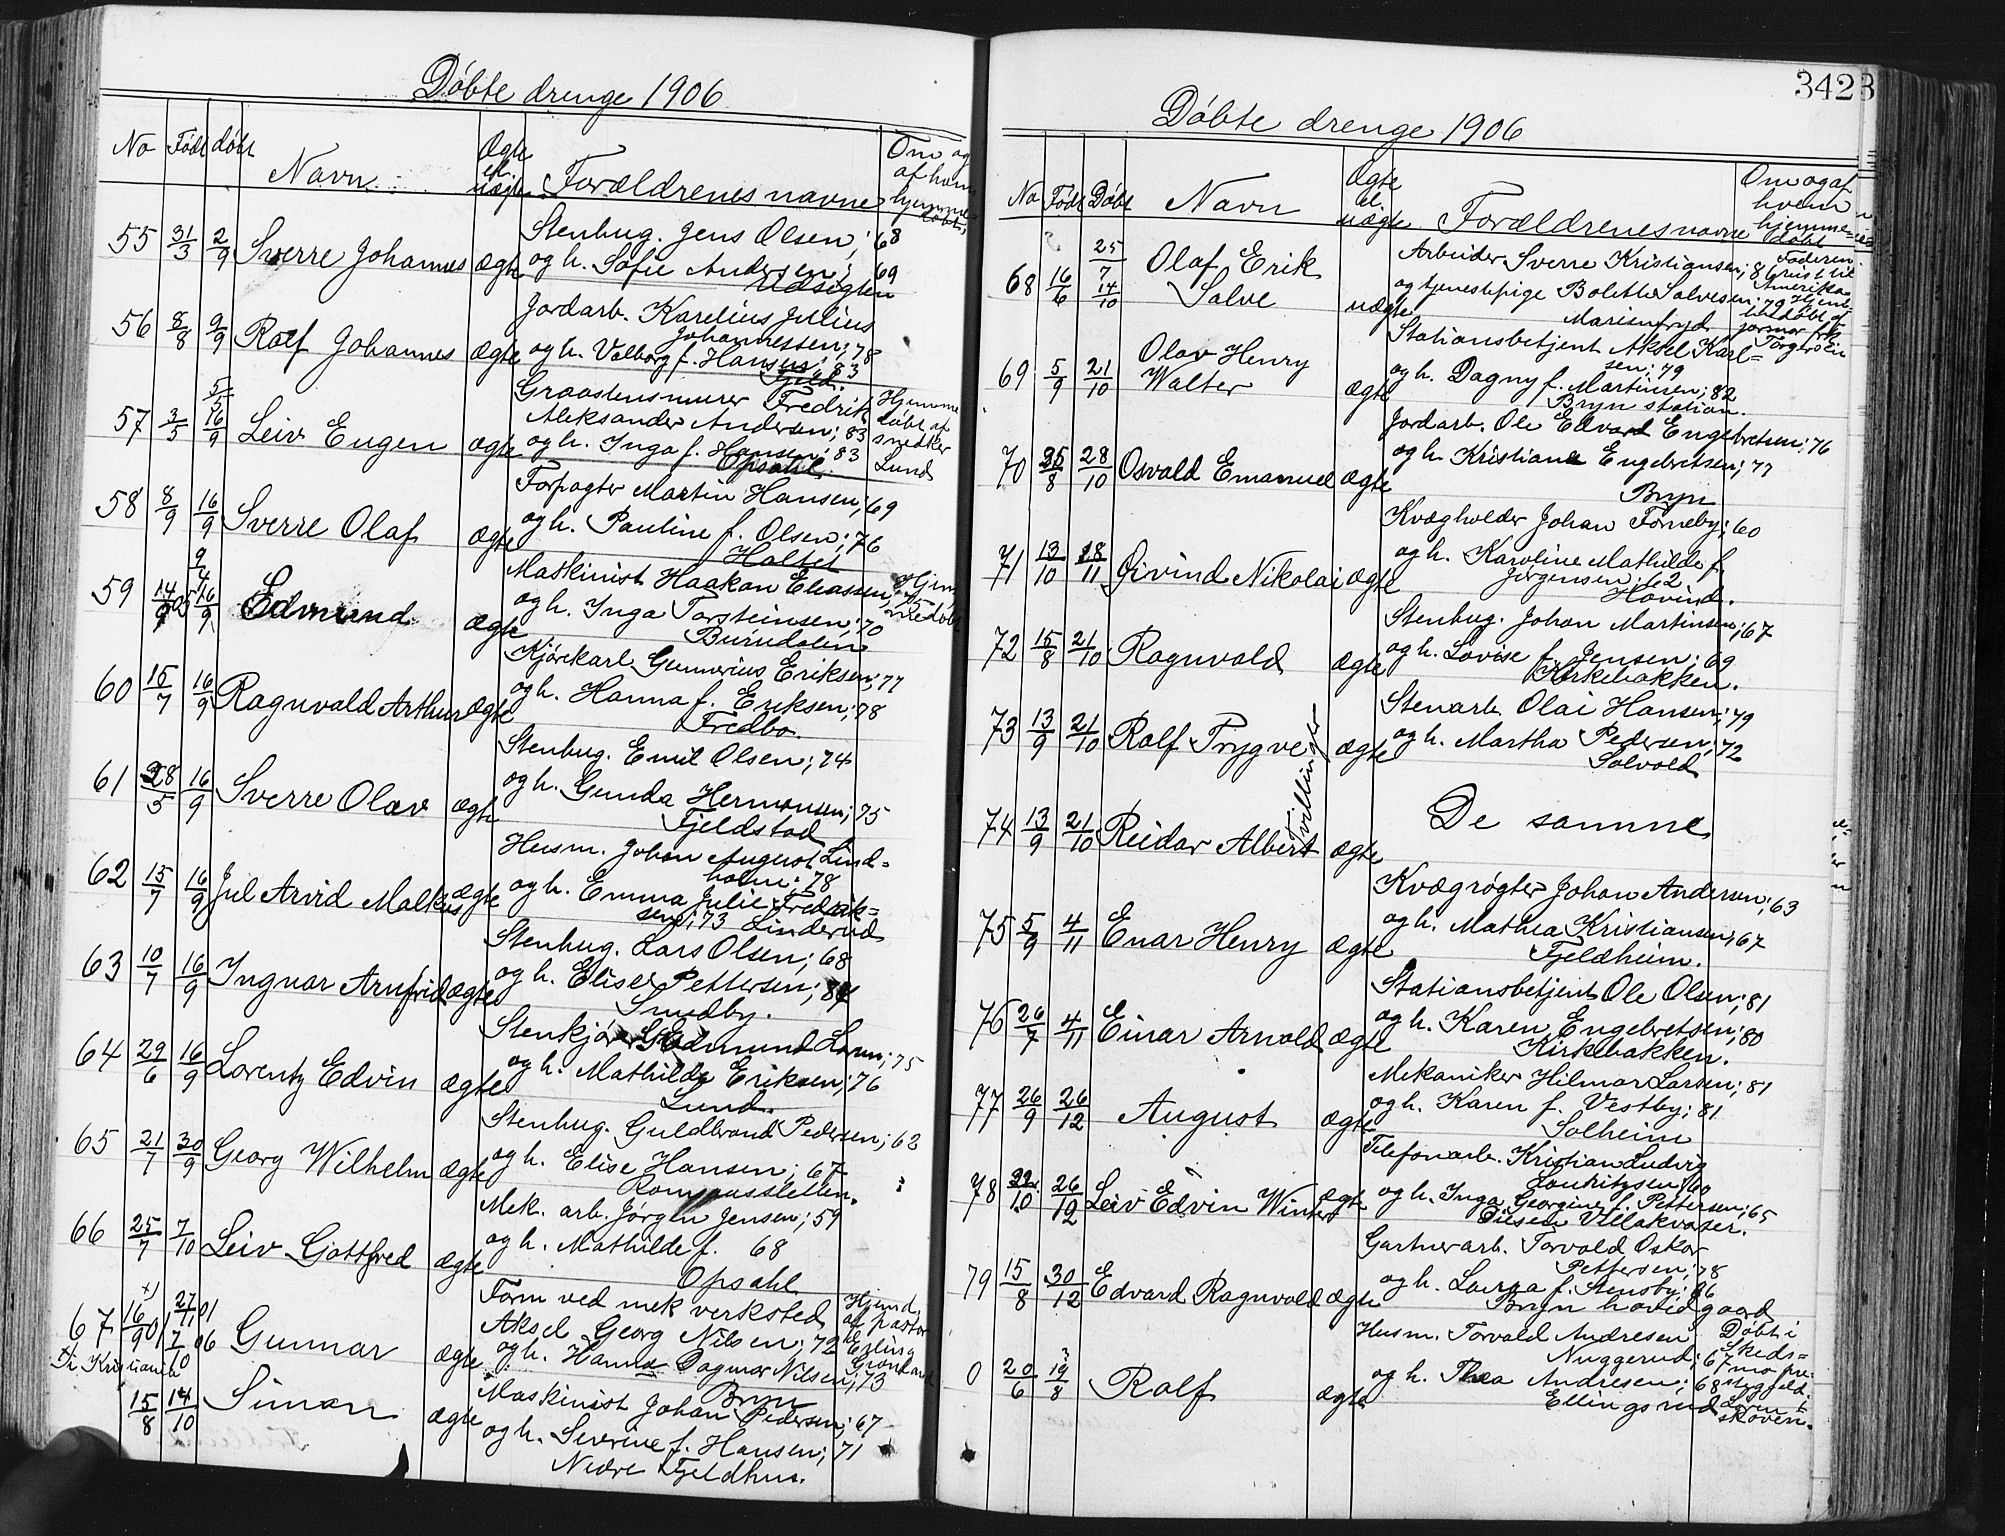 Døbte drenge 1906
No Født døbt Navn Ægte el. uægte Forældrenes navne Om og af hvem hjemme=døbt
55 31/3 2/9 Sverre Johannes ægte
Stenhug. Jens Olsen; 68
og h. Sofie Andersen; 69
Udsigten
56 8/8 9/9 Rolf Johannes ægte
Jordarb. Karelius Julius
Johannessen; 78
og h. Valborg f. Hansen; 83
57 3/5 5/5 16/9 Leiv Eugen ægte
Graastensmurer Fredrik
Aleksander Andersen; 83
og h. Inga f. Hansen; 83
Opsahl.
Hjemme
døbt af
snedker
Lund
58 8/9 16/9 Sverre Olaf ægte
Forpagter Martin Hansen; 69
og h. Pauline f. Olsen; 76
Haltet
59 14/9 05 16/9 Edmund ægte
Maskinist Haakon Eliassen; 75
og h. Inga Torsteinsen; 70
Burudalen
Hjem
medøbt
60 15/7 16/9 Ragnvald Arthur ægte
Kjørekarl Gunnerius Eriksen; 77
og h. Hanna f. Eriksen; 78
Fredbo.
61 28/5 16/9 Sverre Olav ægte
Stenhug. Emil Olsen; 74
og h. Gunda Hermansen; 75
Fjeldstad
62 15/7 16/9 Jul Arvid Malkus ægte
Husm. Johan August Lind=
holm; 78
og h. Emma Julie Fredrik=
sen; 73 Linderud
63 10/7 16/9 Ingvar Arnfrid ægte
Stenhug. Lars Olsen; 68
og h. Elise Pettersen; 84
Smedby.
64 29/6 16/9 Lorentz Edvin ægte
Stenkjører Edmund Loren; 75
og h. Mathilde Eriksen; 76
Lund.
65 21/7 30/9 Georg Wilhelm ægte
Stenhug. Guldbrand Pedersen; 63
og h. Elise Hansen; 67
Rompassletten.
66 25/7 7/10 Leiv Gottfred ægte
Mek. arb. Jørgen Jensen; 59
og h. Mathilde f. 68
Opsahl
67 16/9 01 27/11 01 7/10 06 Gunnar ægte
Form ved mek verksted
Aksel Georg Nilsen; 72
og h. Hanna Dagmar Nilsen; 73
Bryn
Hjemd.
af pastor
Erling
Grønland
i Kristiania
15/8 14/10 Simon ægte
Maskinist Johan Pedersen; 67
og h. Severine f. Hansen; 71
Nedre Fjeldhus.
3423
Døbte drenge 1906
No Født Døbt Navn Ægte el. uægte Forældrenes navne Om og af hvem hjemme=døbt
68 16/6 25/7 14/10 Olaf Erik
Salve uægte
Arbeider Sverre Kristiansen; 86
og tjenestepige Bolette Salvesen; 79
Marienfryd
Faderen
reist til
Amerika
Hjem
medøbt af
jormor frk
Torgersen
69 5/9 21/10 Olav Henry
Walter ægte
Stationsbetjent Aksel Karl=
sen; 79
og h. Dagny f. Martinsen; 82
Bryn station.
70 25/8 28/10 Osvald Emanuel ægte
Jordarb. Ole Edvard Engebretsen; 76
og h. Kristiane Engebretsen; 77
Bryn
71 13/10 18/11 Øivind Nikolai ægte
Kvægholder Johan Forneby; 60
og h. Karoline Mathilde f.
Jørgensen; 62
Hovind.
72 15/8 21/10 Ragnvald ægte
Stenhug. Johan Martinsen; 67
og h. Lovise f. Jensen; 69
Kirkebakken.
73 13/9 21/10 Rolf Trygve ægte
Stenarb. Olai Hansen; 79
og h. Martha Pedersen; 72
Solvold
Tvillinger
74 13/9 21/10 Reidar Albert ægte
De samme
75 5/9 4/11 Enar Henry ægte
Kvægrøgter Johan Andersen; 63
og h. Mathea Kristiansen; 67
Fjeldheim.
76 26/7 4/11 Einar Arnold ægte
Stationsbetjent Ole Olsen; 81
og h. Karen Engebretsen; 80
Kirkebakken.
77 26/9 26/12 August ægte
Mekaniker Hilmar Larsen; 81
og h. Karen f. Vestby; 81
Solheim
78 22/10 26/12 Leiv Edvin Winter ægte
Telefonarb. Kristian Ludvig
Lauritzsen; 60
og h. Inga Georgine f. Pettersen; 65
79 15/8 30/12 Edvard Ragnvald ægte
Gartnerarb. Torvald Oskar
Pettersen; 78
og h. Laura f. Stensby; 86
Bryn hovedgaard
0 20/6 19/8 Rolf ægte
Husm. Torvald Andresen
Nuggerud; 67
og h. Thea Andresen; 68
Ellingsrud
Døbt i
Skeds=
mo pre
stegjeld.
Loren
skoven.